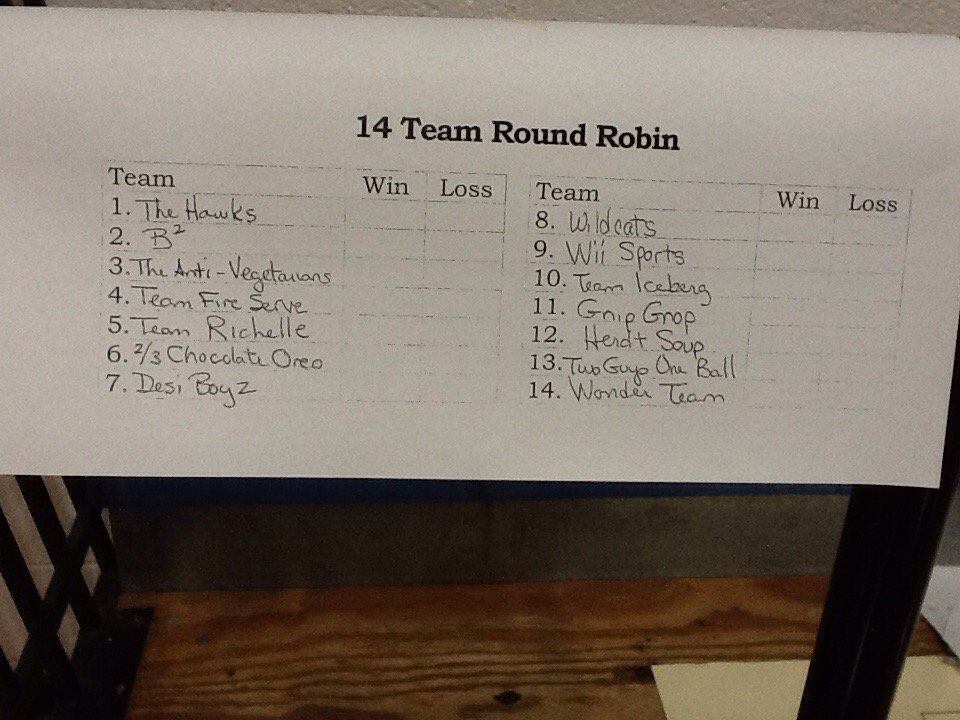 14 Team Round Robin
Team Win Loss
1. The Hawks
2. B²
3. The Anti-Vegetarians
4. Team Fire Serve
5. Team Richelle
6. 2/3 Chocolate Oreo
7. Desi Boyz
Team Win Loss
8. Wildcats
9. Wii Sports
10. Team Iceberg
11. Gnip Gnop
12. Herdt Soup
13. Two Guys One Ball
14. Wonder Team